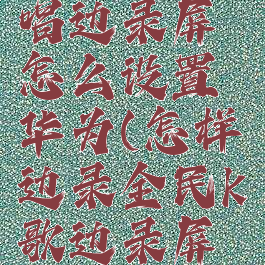 唱边录屏
怎么设置
华为(怎样
边录全民k
歌边录屏